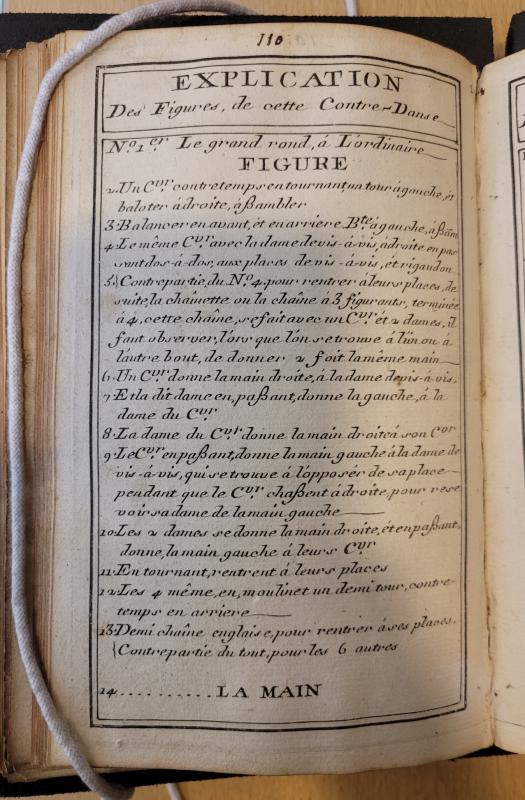 110
EXPLICATION
Des Figures, de cette Contre-Danse
N.º 1.er Le grand rond, á L'ordinaire
FIGURE
2. Un C.vr contretemps en tournant, un tour á gauche, ét
baloter á droite, áßambler
3 Balancer en avant, ét en arriere B.te á gauche, aßam
4 Le même C.vr avec la dame de vis-á-vis, á droite en pas
sont dos-á-dos, aux places de vis-á-vis, ét rigaudon
5 Contrepartie, du N.º 4, pour rentrer á leurs places, de
suite, la chainette ou la chaîne á 3 figurants, terminée
á 4, cette chaîne, se fait avec un C.vr ét 2 dames, il
faut observer, lórs que lón se retrouve á lún ou á
láutre bout, de donner 2 foit la même main
6 Un C.vr donne la main droite, á la dame de vis-á-vis.
7 Et la dit dame en, paßant, donne la gauche, á la
dame du C.vr
8 La dame du C.vr donne la main droite á son C.vr
9 Le C.vr en paßant, donne la main gauche á la dame de
vis-á-vis, qui se trouve á lópposér de sa place
pendant que le C.vr chaßent á droite, pour rese
voir sa dame de la main gauche
10 Les 2 dames se donne la main droite, ét en paßant,
donne, la main gauche á leurs C.vr
11 En tournant, rentrent á leurs places
12 Les 4 même, en, moulinet un demi tour, contre-
temps en arriere
13 Demi chaîne englaise, pour rentrer á ses places.
Contrepartie du tout, pour les 6 autres
14 .......... LA MAIN